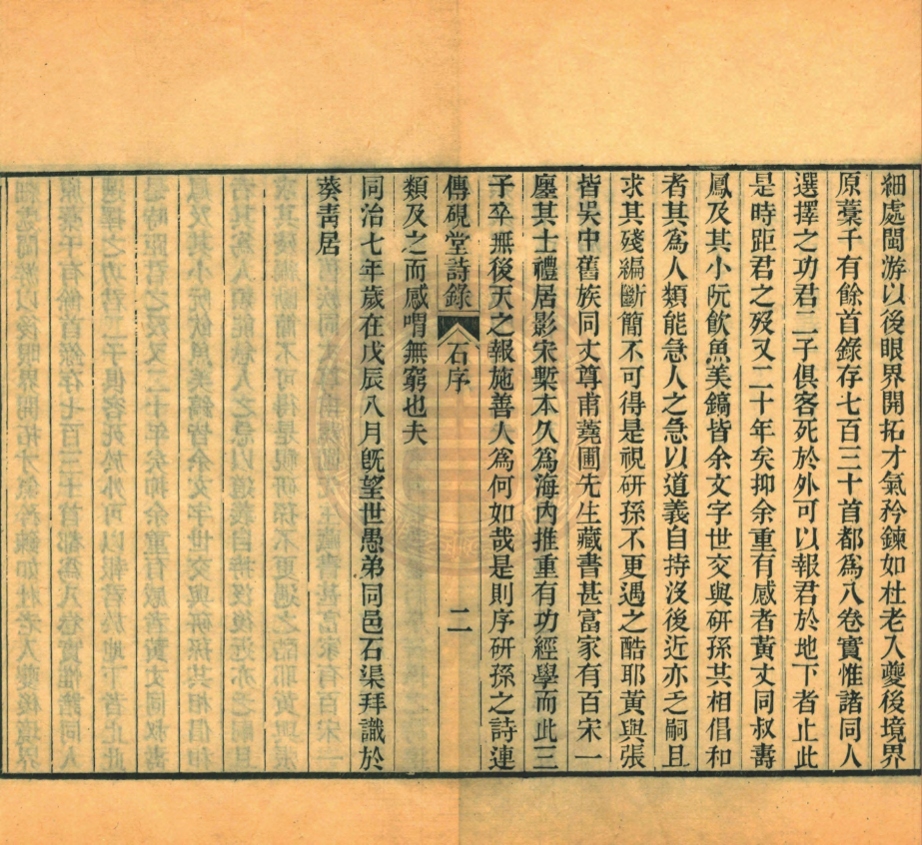 細處閩游以後眼界開拓才氣矜鍊如杜老入夔後境界
原藁千有餘首錄存七百三十首都爲八卷實惟諸同人
選擇之功君二子俱客死於外可以報君於地下者止此
是時距君之歿又二十年矣抑余重有感者黃丈同叔壽
鳳及其小阮飲魚美鎬皆余文字世交與研孫其相倡和
者其爲人類能急人之急以道義自持沒後近亦乏嗣且
求其殘編斷簡不可得是視研孫不更遇之酷耶黃與張
皆吳中舊族同丈尊甫蕘圃先生藏書甚富家有百宋一
廛其士禮居影宋槧本久爲海內推重有功經學而此三
子卒無後天之報施善人爲何如哉是則序研孫之詩連
傳硯堂詩錄 石序 二
類及之而感喟無窮也夫
同治七年歲在戊辰八月旣望世愚弟同邑石渠拜識於
葵靑居